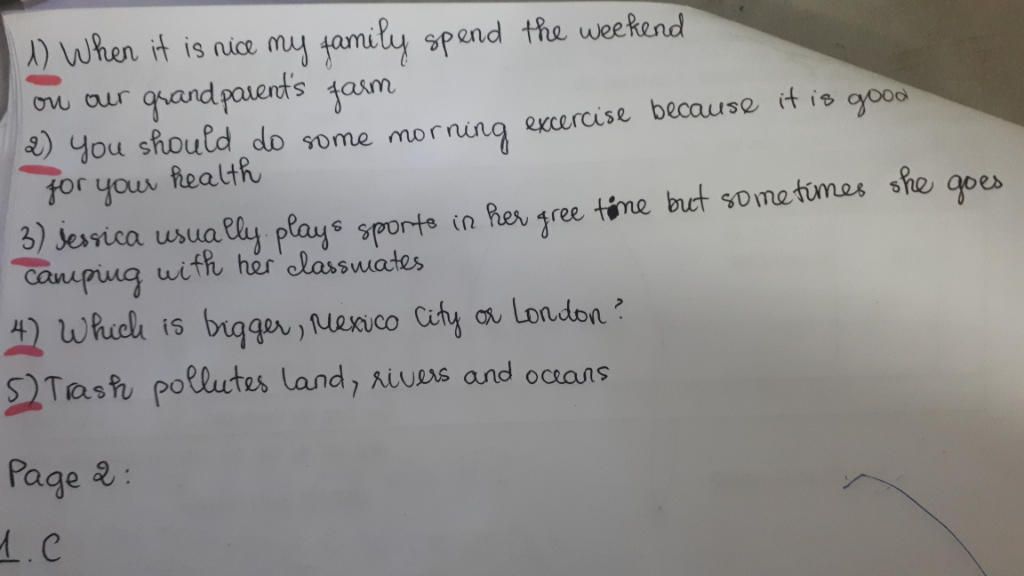 1) When it is nice my family spend the weekend
on our grandparent's farm
2) You should do some morning excercise because it is good
for your health
3) Jessica usually plays sports in her free time but sometimes she goes
camping with her classmates
4) Which is bigger, Mexico City or London?
5) Trash pollutes land, rivers and oceans
Page 2:
1. C